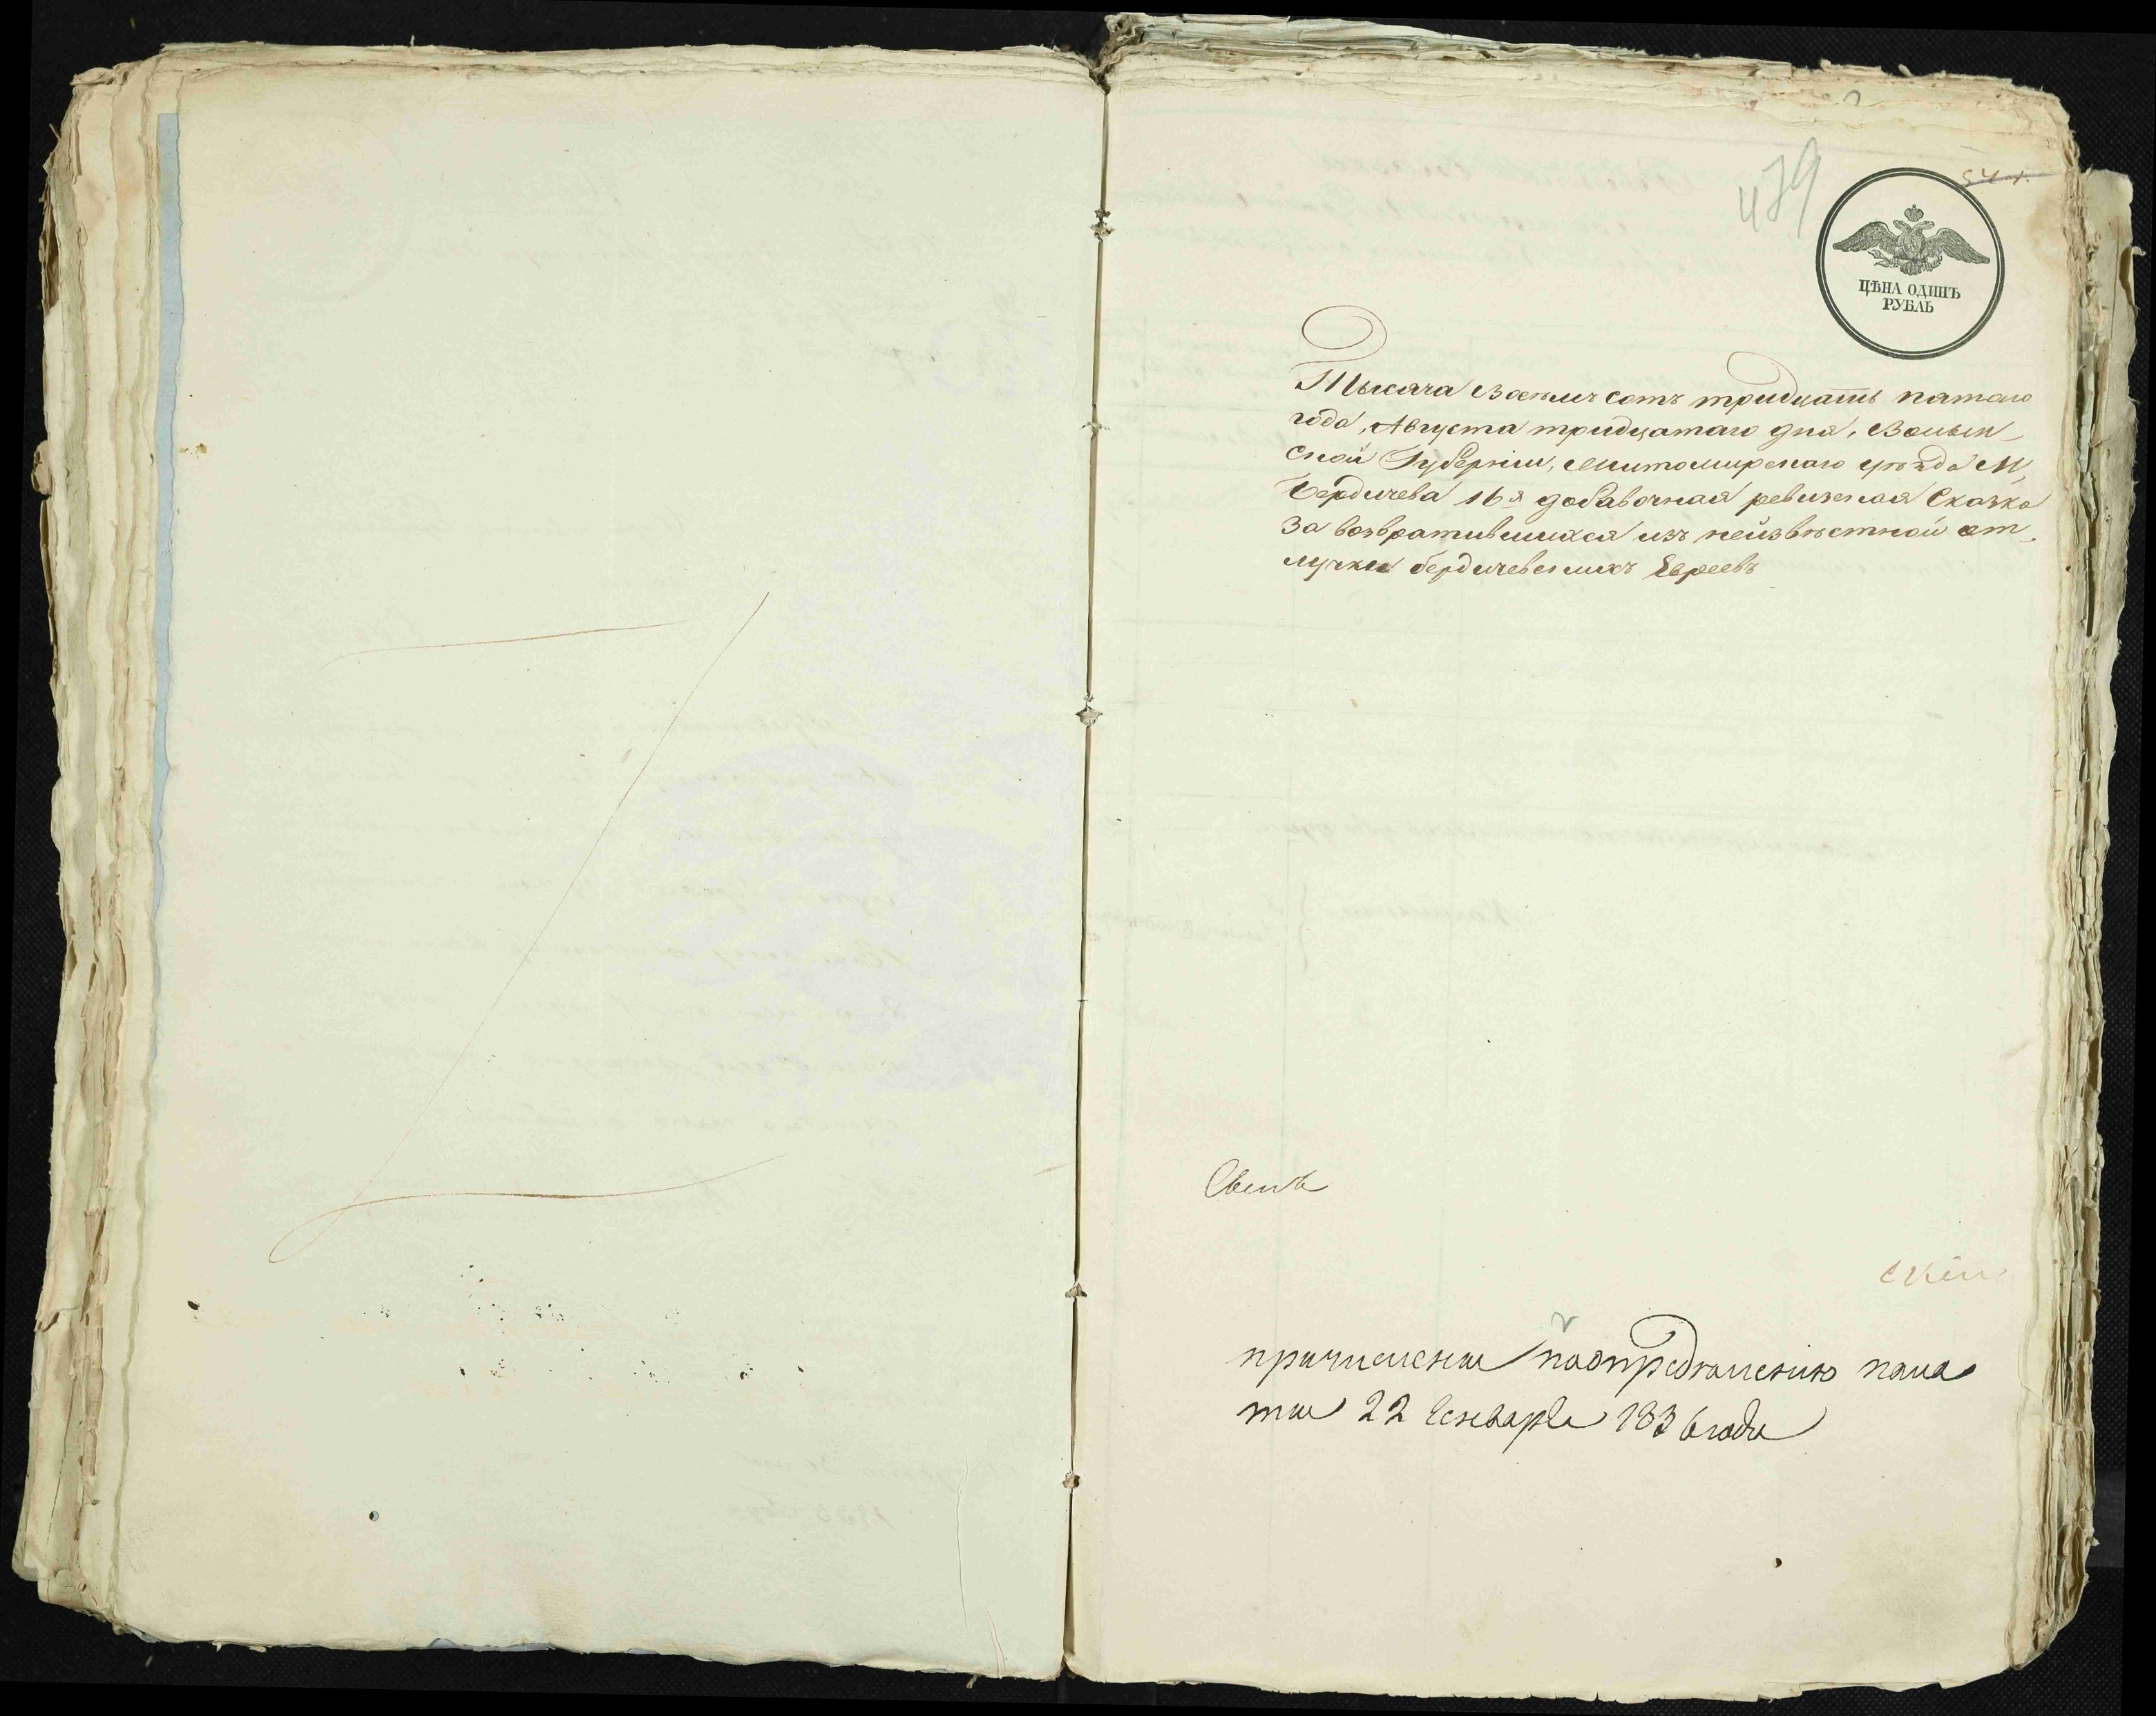 479
541.
ЦѢНА ОДИНЪ
РУБЛЬ
Тысяча Восемь сотъ тридцать пятаго
года, Августа тридцатаго дня, Волын-
ской Губерніи, Житомирскаго уѣзда М,
Бердичева 16я добавочная ревизская Сказка
За возвратившихся изъ неизвѣстной от-
лучки бердичевскихъ Евреевъ
скiй
причислены по опредѣленію пала
ты 22 Генваря 1836 года